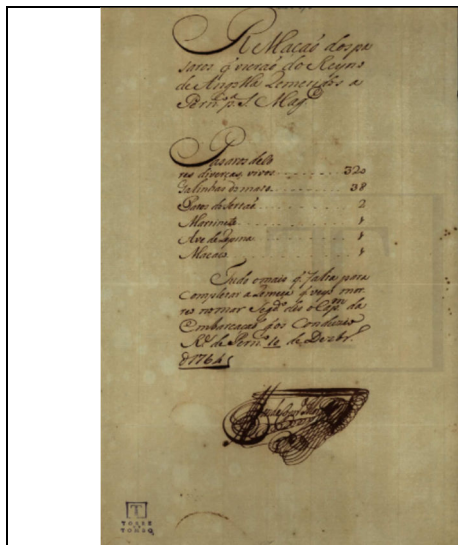 R Maçaõ dos pa
saros q' vieraõ do Reyno
de Angolla Remetidos a
Pern.co p.a S. Mag.e
Pasaros de Co
res diverças, vivos 320
Galinhas do mato 38
Patos do Sertaõ 2
Marrinetta 1
Ave de Rapina 1
Macaco 1
Tudo o mais q' falta para
Completar a Remeça q' veyo mor
reo no mar Seg.do diz o Cap.am da
Embarcaçaõ q' os Conduzio
R.e de Pern.co 10 de Dezbr.o
d'1764
TORRE
DO
TOMBO